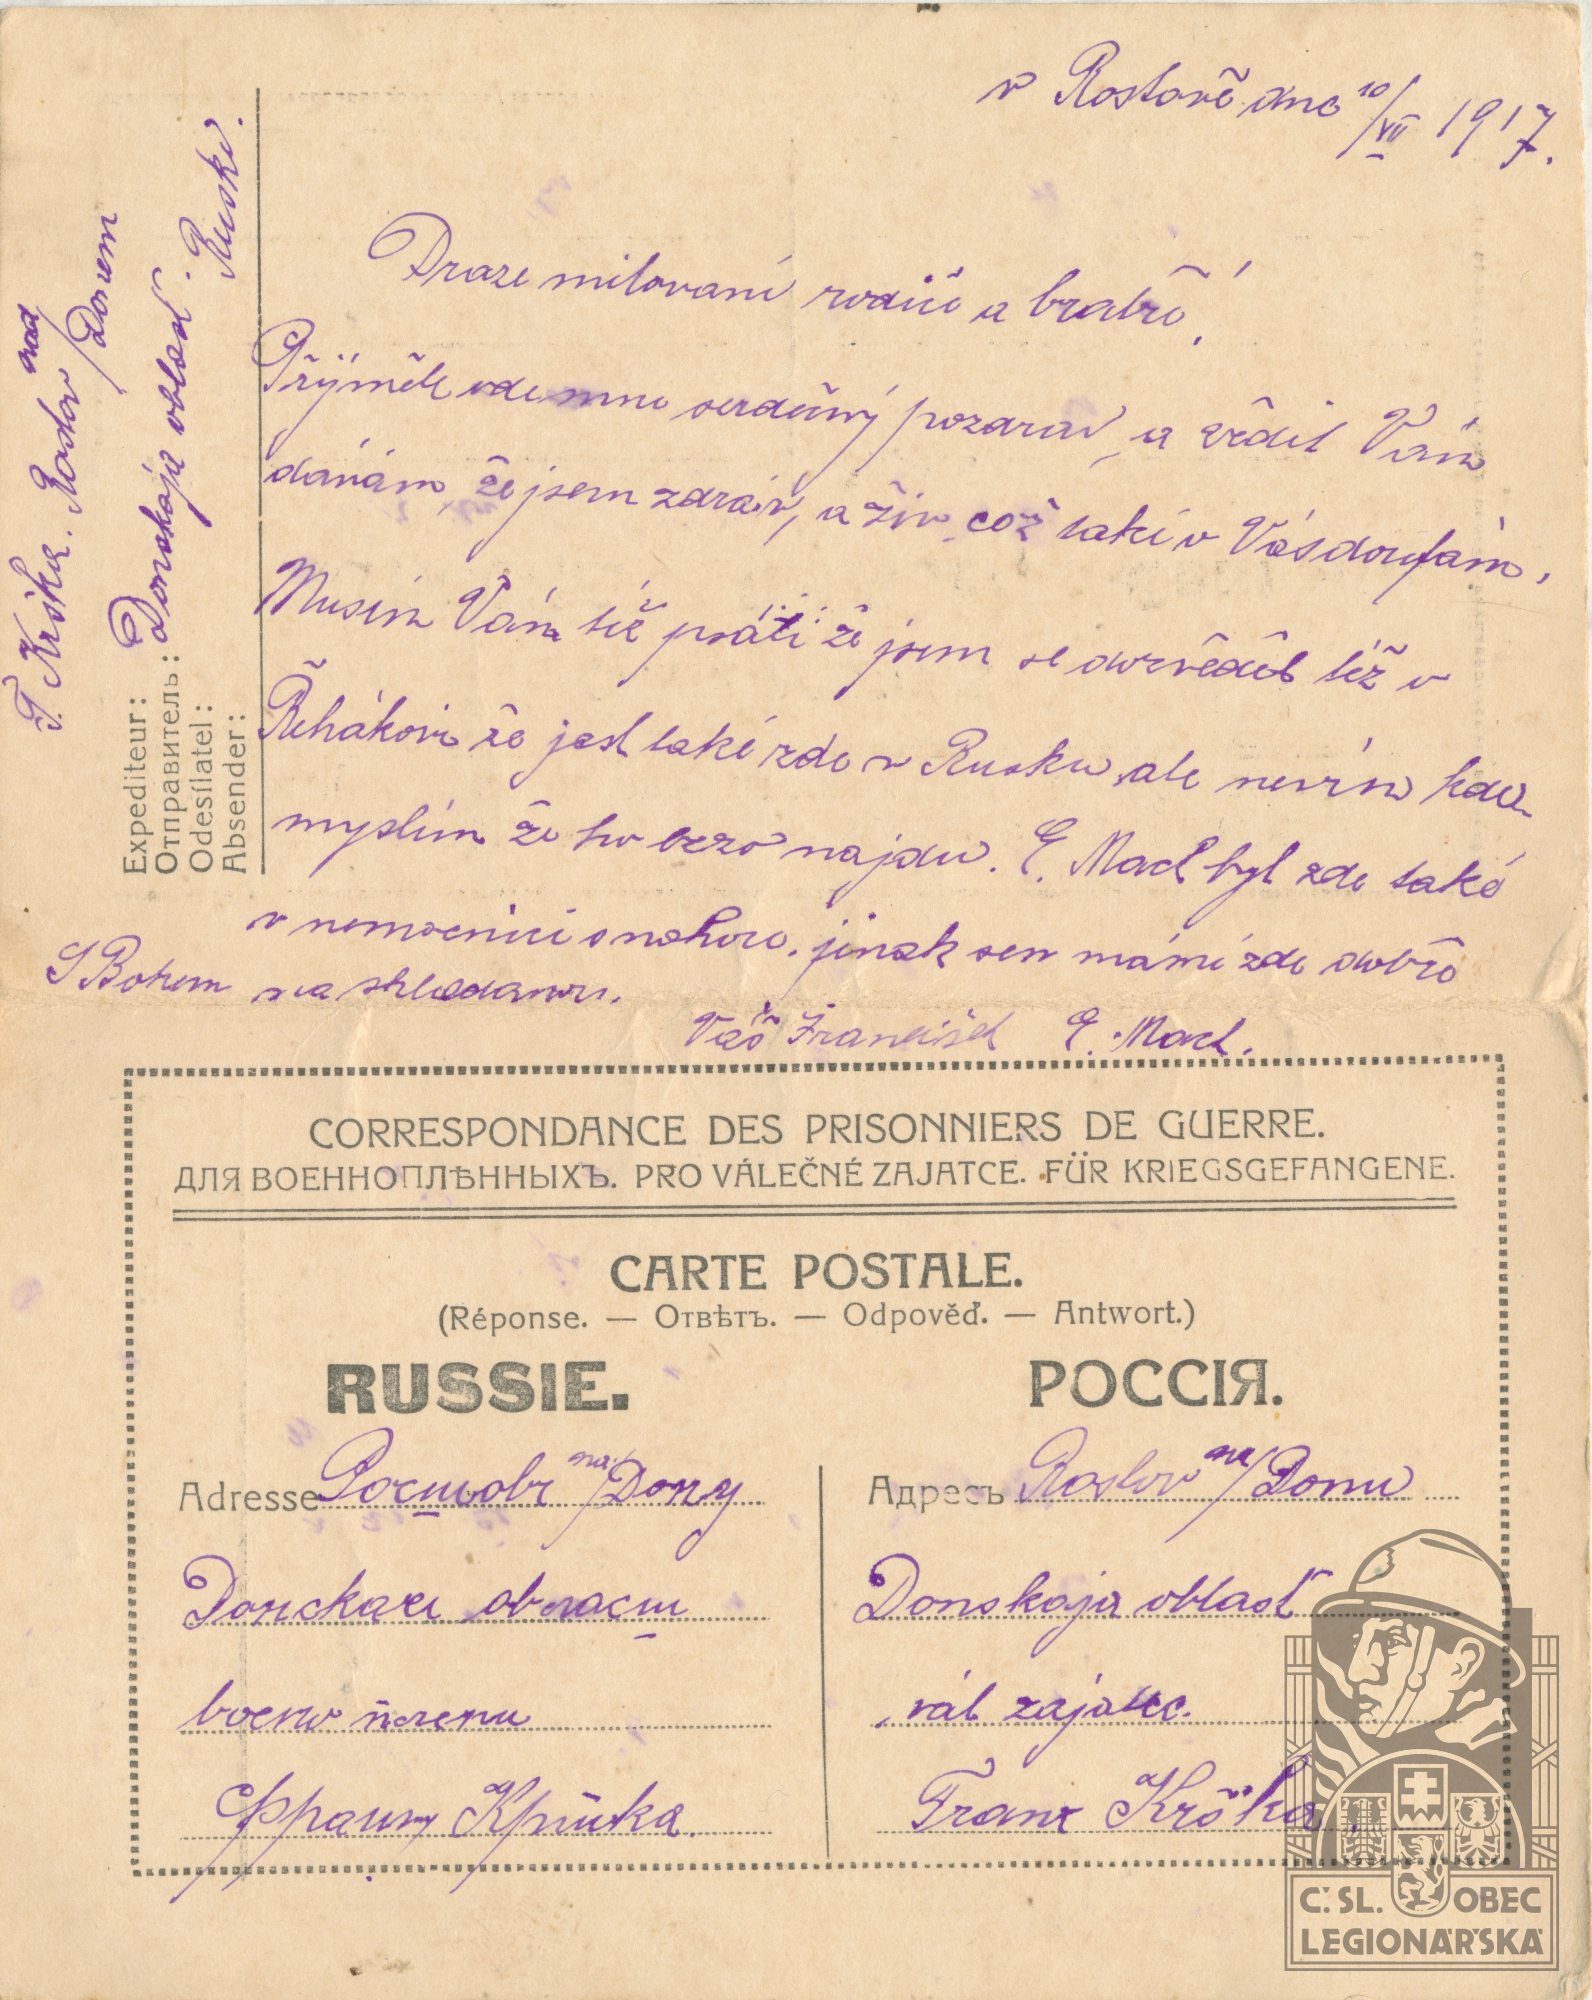 v Rostově dne 10/VII 1917.
Draze milovaní rodiče a bratře!
Přijměte ode mne serdečný pozdrav, a vědět Vám
dávám, že jsem zdráv, a živ, což také v Vás doufám,
Musím Vám též psáti že jsem se dozvěděl též v
Řehákovi že jest také zde v Rusku, ale nevím kde
myslím že ho brzo najdu. E. Macl byl zde také
v nemocnici jinak sem mámi zde dobře
S Bohem na shledanou.
Váš František E. Macl.
F. Krška. Rostov nad/Donem
Donskaja oblast. Rusko.
Expediteur:
Отправитель:
Odesílatel:
Absender:
CORRESPONDANCE DES PRISONNIERS DE GUERRE.
ДЛЯ ВОЕННОПЛѢННЫХЪ. PRO VÁLEČNÉ ZAJATCE. FÜR KRIEGSGEFANGENE.
CARTE POSTALE.
(Réponse. — Отвѣтъ. — Odpověď. — Antwort.)
RUSSIE. РОССІЯ.
Adresse Ростовъ на/Дону
Донская области
воено плени
Франц Кршка.
Адресъ Rostov na/Donu
Donskaja oblast
vál zajatec.
Franz Krška.
Č. SL. OBEC
LEGIONÁŘSKÁ